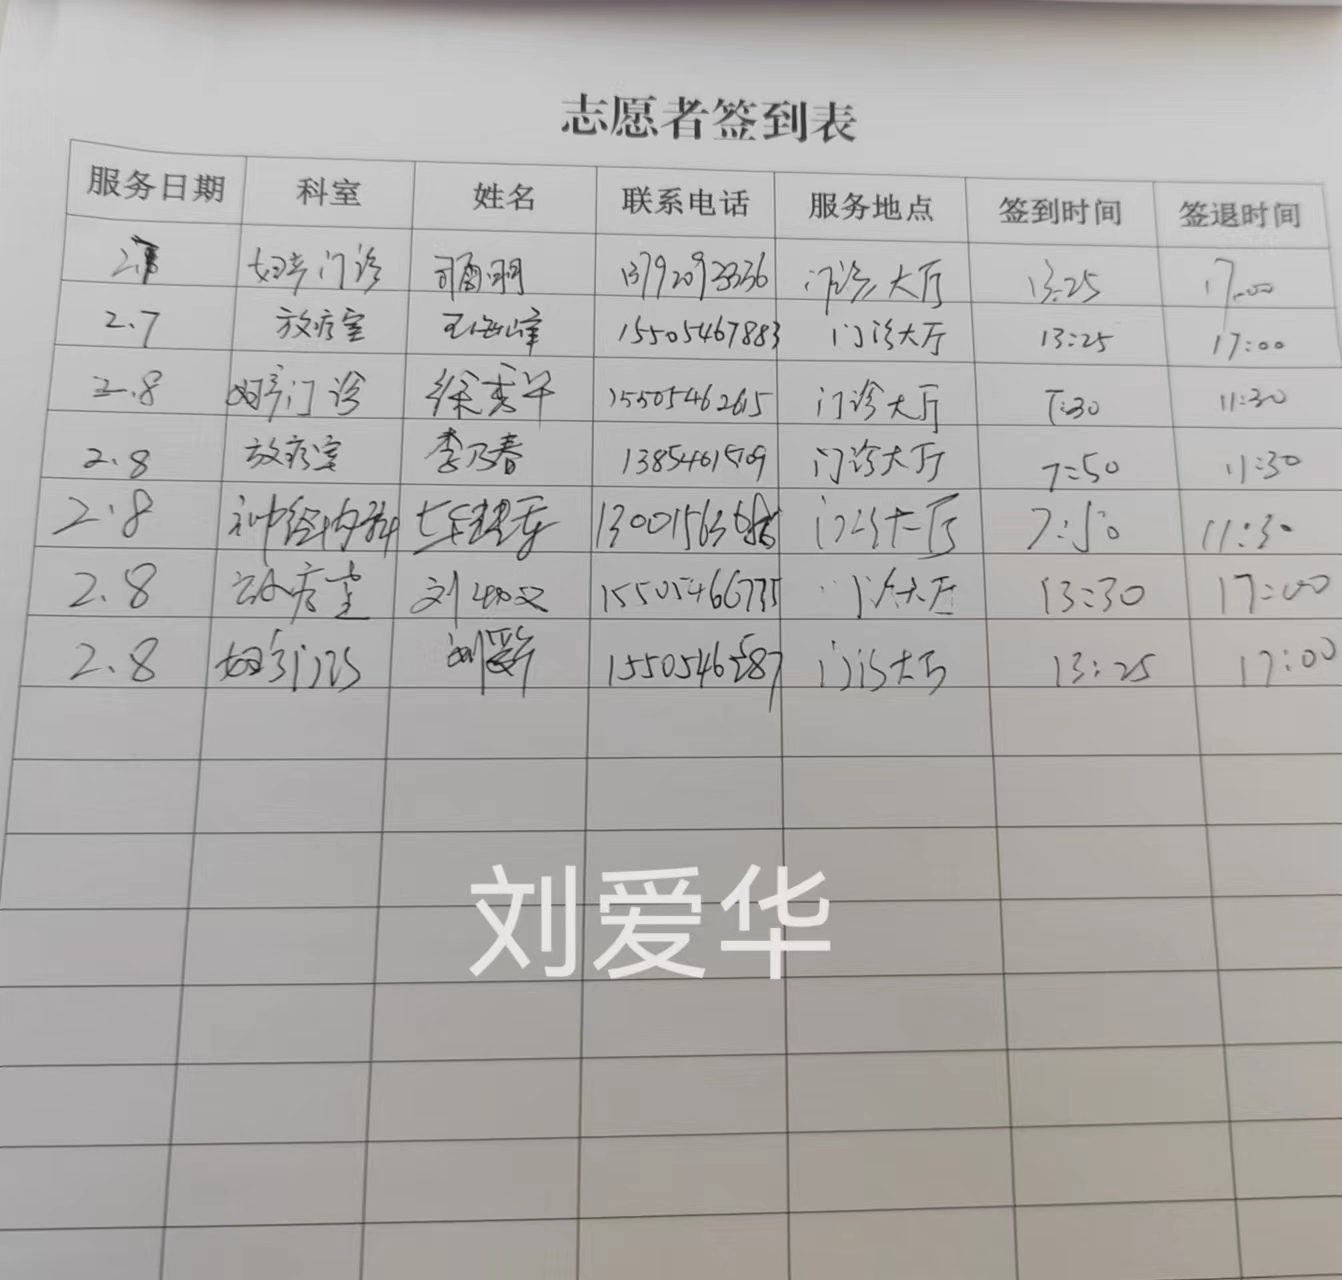 志愿者签到表
服务日期 科室 姓名 联系电话 服务地点 签到时间 签退时间
妇产门诊 13792093336 门诊大厅 13:25 17:00
2.7 放疗室 王海峰 15505467883 门诊大厅 13:25 17:00
2.8 妇产门诊 徐秀平 15505462615 门诊大厅 7:30 11:30
2.8 放疗室 李乃春 门诊大厅 7:50 11:30
2.8 神经内科 门诊大厅 7:50 11:30
2.8 放疗室 15505466735 门诊大厅 13:30 17:00
2.8 妇产门诊 门诊大厅 13:25 17:00
刘爱华